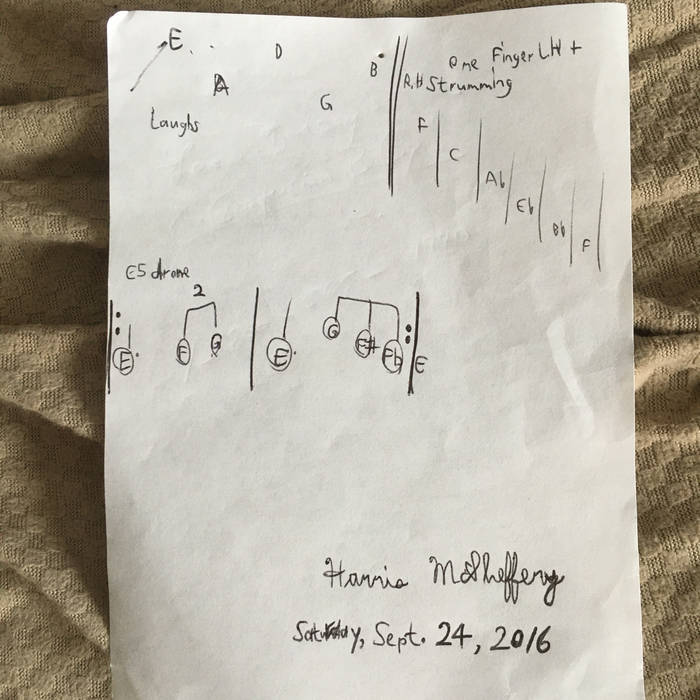 E. . D
A B
G
Laughs
One Finger LH +
R.H Strumming
F
C
Ab
Eb
Bb
F
E5 drone
2
E. F G E. G F# Eb E
Saturday, Sept. 24, 2016